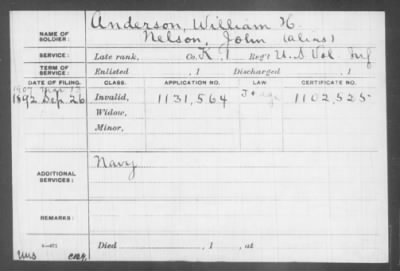 Anderson, William H.
NAME OF SOLDIER: Nelson, John (alias)
SERVICE: Late rank, Co. K, 1 Reg't U.S. Vol. Inf
TERM OF SERVICE: Enlisted , 1 Discharged , 1
DATE OF FILING. CLASS. APPLICATION NO. LAW. CERTIFICATE NO.
1907
1892 Sep. 26 Invalid, 1131,564 1102,525
Widow,
Minor,
ADDITIONAL SERVICES: Navy
REMARKS:
Died , 1 , at